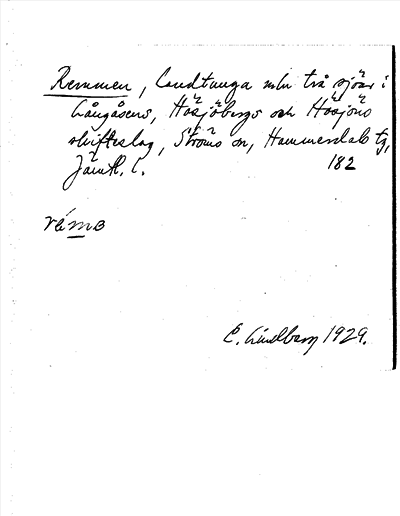 Remmen, landtunga mln två sjöar i
Långåsens, Hösjöbergs och Hösjöns
skifteslag, Ströms sn, Hammerdals tg,
Jämtl. l. 182
rémə
E. Lindberg 1929.